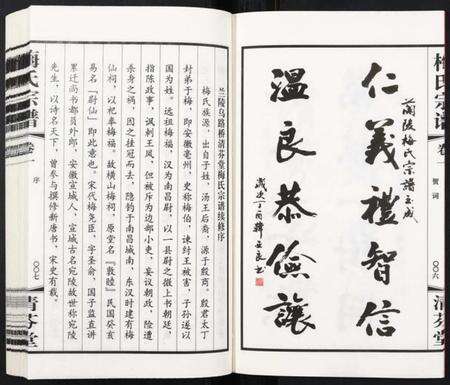 梅氏宗谱
卷一
贺词
〇〇六
清芬堂
蘭陵梅氏宗譜玉成
仁義禮智信
温良恭儉讓
歲次丁酉韓正良书
兰陵乌路桥清芬堂梅氏宗谱接修序
梅氏族源，出自子姓，汤王后裔，源于殷商。殷君太丁
封弟于梅，即安徽亳州，史称梅伯，谏纣王被害，子孙遂以
国为姓。远祖梅福，汉为南昌尉，以一县尉之微上书朝廷，
指陈政事，讽刺王凤，但被斥为边部小吏，妄议朝政，险遭
杀身之祸，因之挂冠而去，隐钓于南昌城南，东汉时建有梅
仙祠，以祀奉梅福。故横山梅祠，原堂名『敦睦』民国癸亥
易名『尉仙』即此意也。宋代梅尧臣，字圣俞，国子监直讲
累迁尚书都员外郎，安徽宣城人，宣城古名宛陵故世称宛陵
先生，以诗名天下，曾参与撰修新唐书，宋史有载。
梅氏宗谱
卷一
序
〇〇七
清芬堂